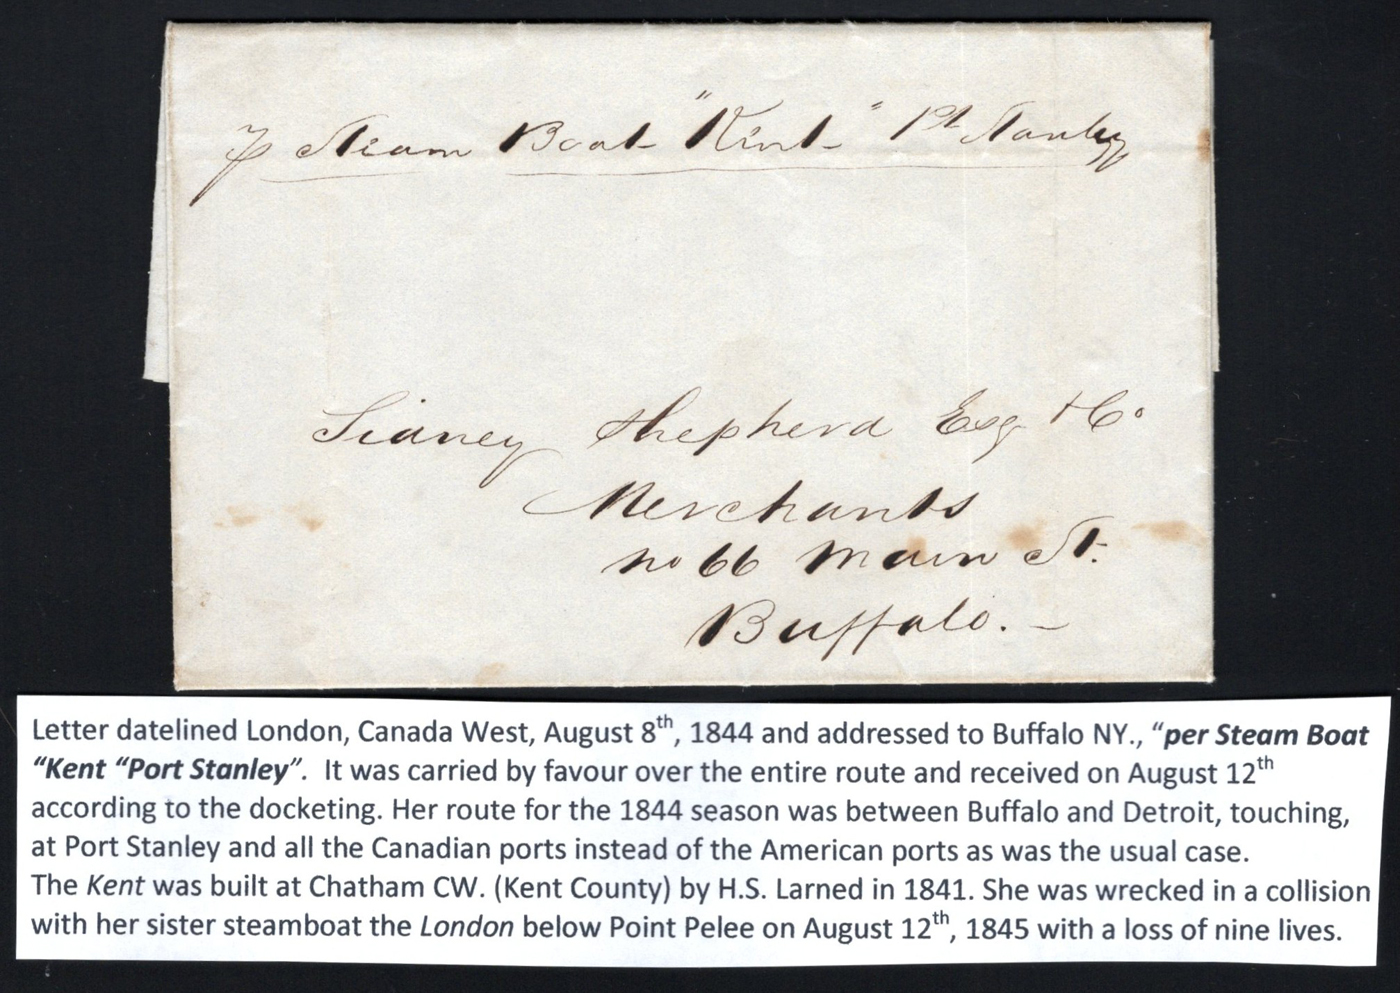 p Steam Boat "Kent" Pt Stanley
Sidney Shepherd Esq & Co
Merchants
No 66 Main St.
Buffalo. —
Letter datelined London, Canada West, August 8th, 1844 and addressed to Buffalo NY., "per Steam Boat
"Kent "Port Stanley". It was carried by favour over the entire route and received on August 12th
according to the docketing. Her route for the 1844 season was between Buffalo and Detroit, touching,
at Port Stanley and all the Canadian ports instead of the American ports as was the usual case.
The Kent was built at Chatham CW. (Kent County) by H.S. Larned in 1841. She was wrecked in a collision
with her sister steamboat the London below Point Pelee on August 12th, 1845 with a loss of nine lives.